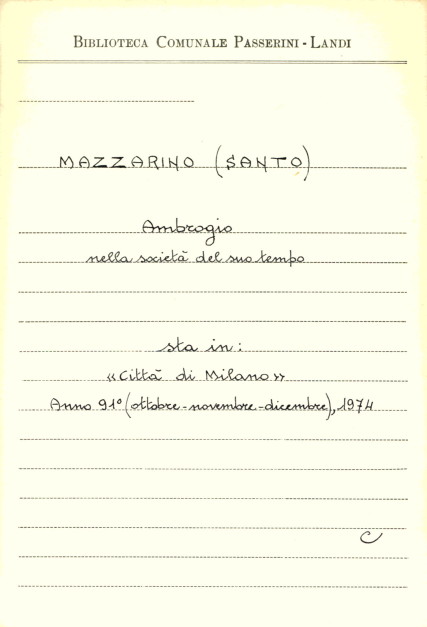 BIBLIOTECA COMUNALE PASSERINI - LANDI
MAZZARINO (SANTO)
Ambrogio
nella società del suo tempo
sta in:
«Città di Milano»
Anno 91° (ottobre-novembre-dicembre), 1974
C